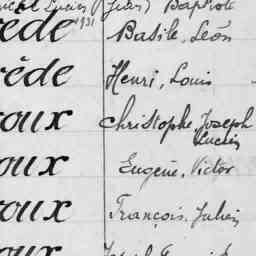 Lucien (Jules) Baptiste
1931
ède Basile, Léon
ède Henri, Louis
oux Christophe, Joseph
Lucien
oux Eugène, Victor
oux François, Julien
oux Joseph